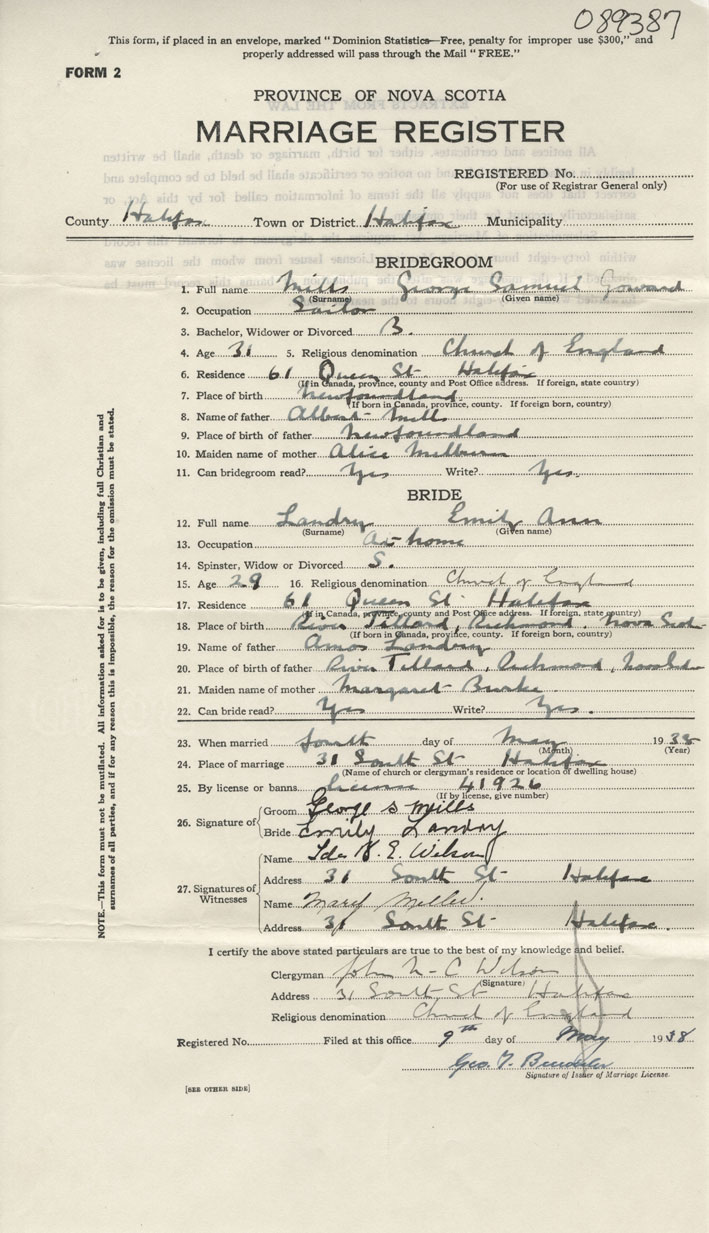 089387
This form, if placed in an envelope, marked "Dominion Statistics—Free, penalty for improper use $300," and
properly addressed will pass through the Mail "FREE."
FORM 2
PROVINCE OF NOVA SCOTIA
MARRIAGE REGISTER
REGISTERED No.
(For use of Registrar General only)
County Halifax Town or District Halifax Municipality
BRIDEGROOM
1. Full name Mills George Samuel
(Surname) (Given name)
2. Occupation Sailor
3. Bachelor, Widower or Divorced B.
4. Age 31 5. Religious denomination Church of England
6. Residence 61 Queen St Halifax
(If in Canada, province, county and Post Office address. If foreign, state country)
7. Place of birth Newfoundland
(If born in Canada, province, county. If foreign born, country)
8. Name of father Albert Mills
9. Place of birth of father Newfoundland
10. Maiden name of mother Alice
11. Can bridegroom read? Yes Write? Yes.
BRIDE
12. Full name Landry Emily Ann
(Surname) (Given name)
13. Occupation At home
14. Spinster, Widow or Divorced S.
15. Age 29 16. Religious denomination Church of England
17. Residence 61 Queen St. Halifax
(If in Canada, province, county and Post Office address. If foreign, state country)
18. Place of birth River Tillard, Richmond, Nova Scot
(If born in Canada, province, county. If foreign born, country)
19. Name of father Amos Landry
20. Place of birth of father River Tillard, Richmond,
21. Maiden name of mother Margaret Burke
22. Can bride read? Yes Write? Yes.
23. When married fourth day of May 1938
(Month) (Year)
24. Place of marriage 31 South St Halifax
(Name of church or clergyman's residence or location of dwelling house)
25. By license or banns license 41926
(If by license, give number)
26. Signature of Groom George S Mills
Bride Emily Landry
27. Signatures of Witnesses
Name Ida H. E. Wilson
Address 31 South St Halifax
Name Mary Miller.
Address 31 South St Halifax.
I certify the above stated particulars are true to the best of my knowledge and belief.
Clergyman John N. C Wilson
(Signature)
Address 31 South St Halifax
Religious denomination Church of England
Registered No. Filed at this office 9th day of May 1938
Geo. T.
Signature of Issuer of Marriage License.
[SEE OTHER SIDE]
NOTE.—This form must not be mutilated. All information asked for is to be given, including full Christian and
surnames of all parties, and if for any reason this is impossible, the reason for the omission must be stated.